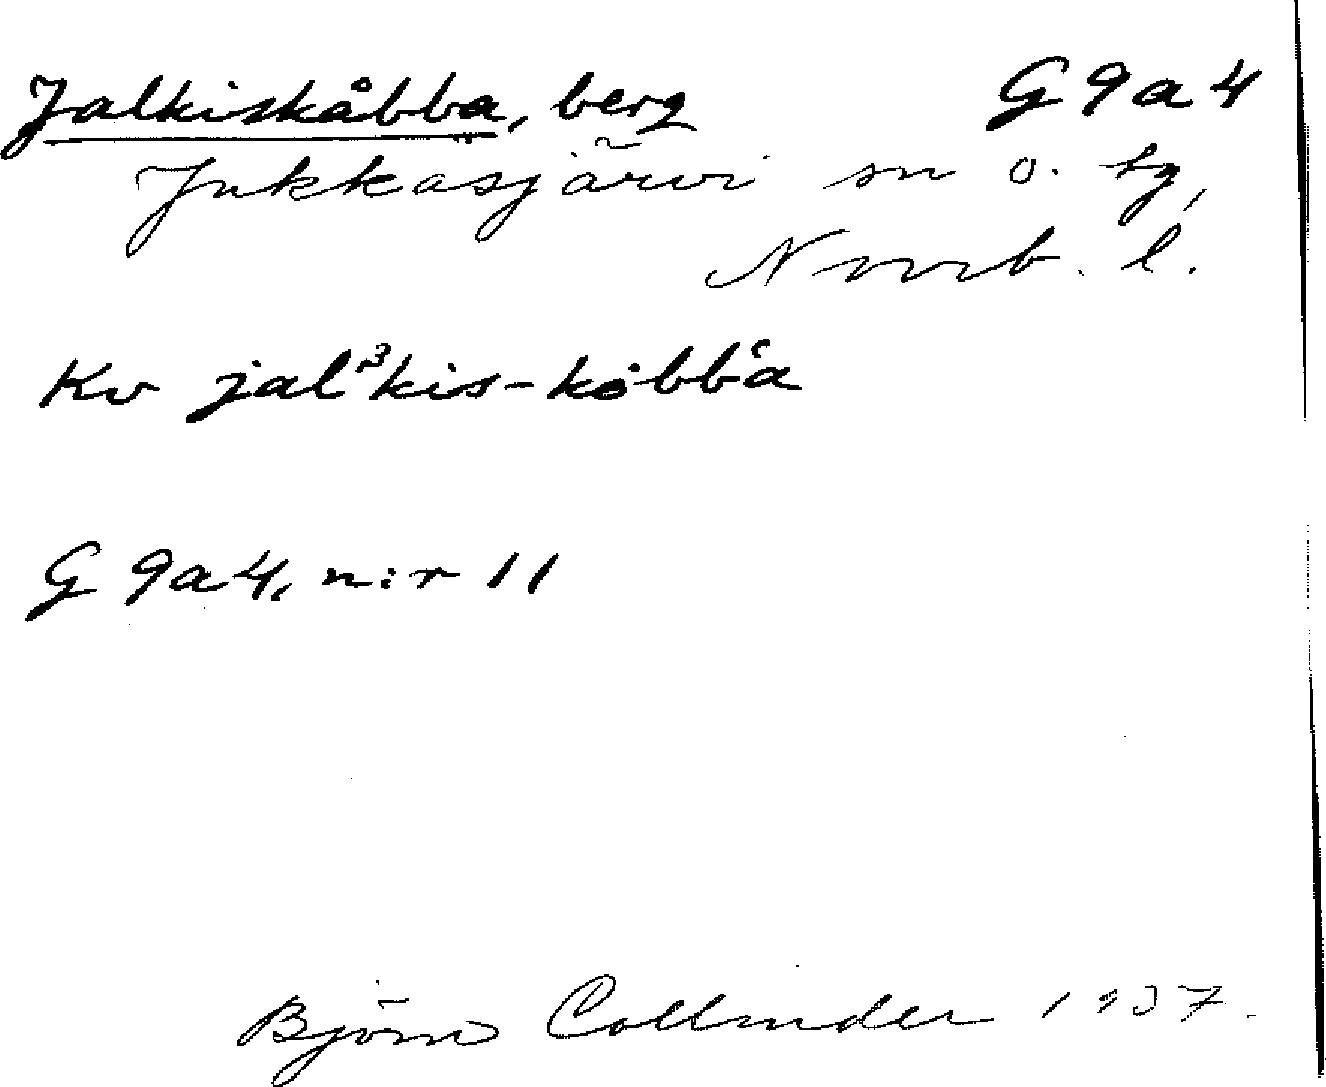 Jalkiskåbba, berg G9a4
Jukkasjärvi sn o. tg,
Norrb. l.
Kv jalᵌkis-kȯbbᵋa
G 9a4, n:r 11
Björn Collinder 1937.